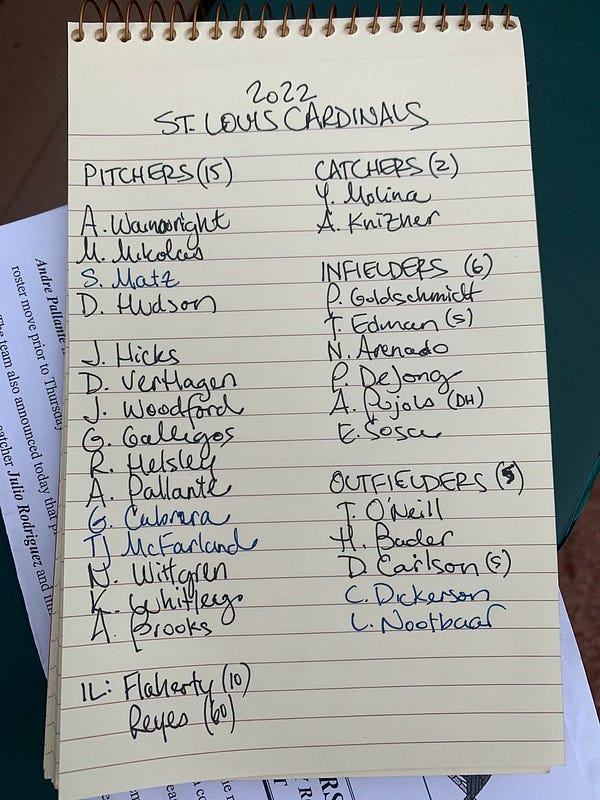 2022
ST. LOUIS CARDINALS
PITCHERS (15)
A. Wainwright
M. Mikolas
S. Matz
D. Hudson
J. Hicks
D. VerHagen
J. Woodford
G. Gallegos
R. Helsley
A. Pallante
G. Cabrera
TJ McFarland
N. Wittgren
K. Whitley
A. Brooks
IL: Flaherty (10)
Reyes (60)
CATCHERS (2)
Y. Molina
A. Knizner
INFIELDERS (6)
P. Goldschmidt
T. Edman (S)
N. Arenado
P. DeJong
A. Pujols (DH)
E. Sosa
OUTFIELDERS (5)
T. O'Neill
H. Bader
D. Carlson (S)
C. Dickerson
L. Nootbaar
Andre Pallante
roster move prior to Thursday
The team also announced today that
catcher Julio Rodriguez and